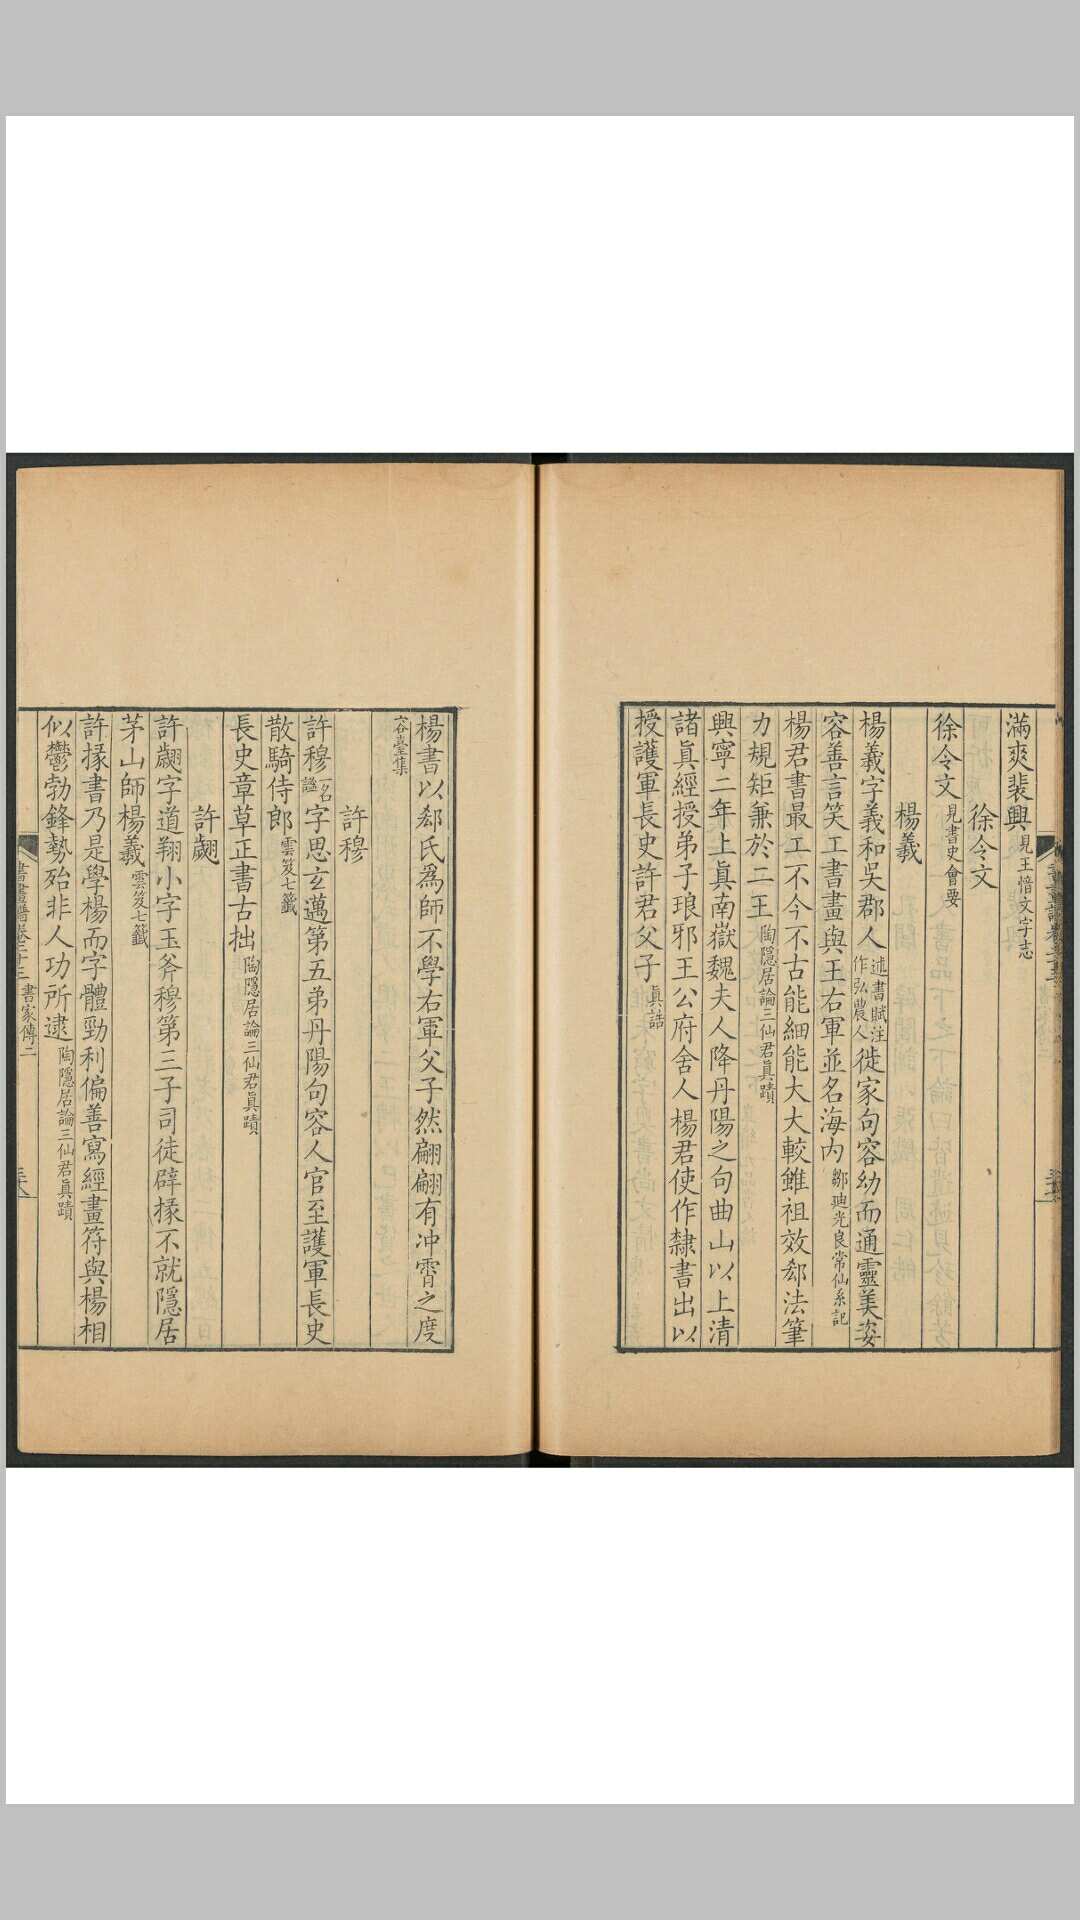 滿爽裴興見王愔文字志
徐令文
徐令文見書史會要
楊羲
楊羲字義和吳郡人述書賦注作弘農人徙家句容幼而通靈美姿
容善言笑工書畫與王右軍並名海內鄒迪光良常仙系記
楊君書最工不今不古能細能大大較雖祖效郄法筆
力規矩兼於二王陶隱居論三仙君真蹟
興寧二年上真南嶽魏夫人降丹陽之句曲山以上清
諸真經授弟子琅邪王公府舍人楊君使作隸書出以
授護軍長史許君父子真誥
楊書以郄氏為師不學右軍父子然翩翩有冲霄之度
容臺集
許穆
許穆一名謐字思玄邁第五弟丹陽句容人官至護軍長史
散騎侍郎雲笈七籤
長史章草正書古拙陶隱居論三仙君真蹟
許翽
許翽字道翔小字玉斧穆第三子司徒辟掾不就隱居
茅山師楊羲雲笈七籤
許掾書乃是學楊而字體勁利偏善寫經畫符與楊相
似鬱勃鋒勢殆非人功所逮陶隱居論三仙君真蹟
書畫譜卷二十三 書家傳二